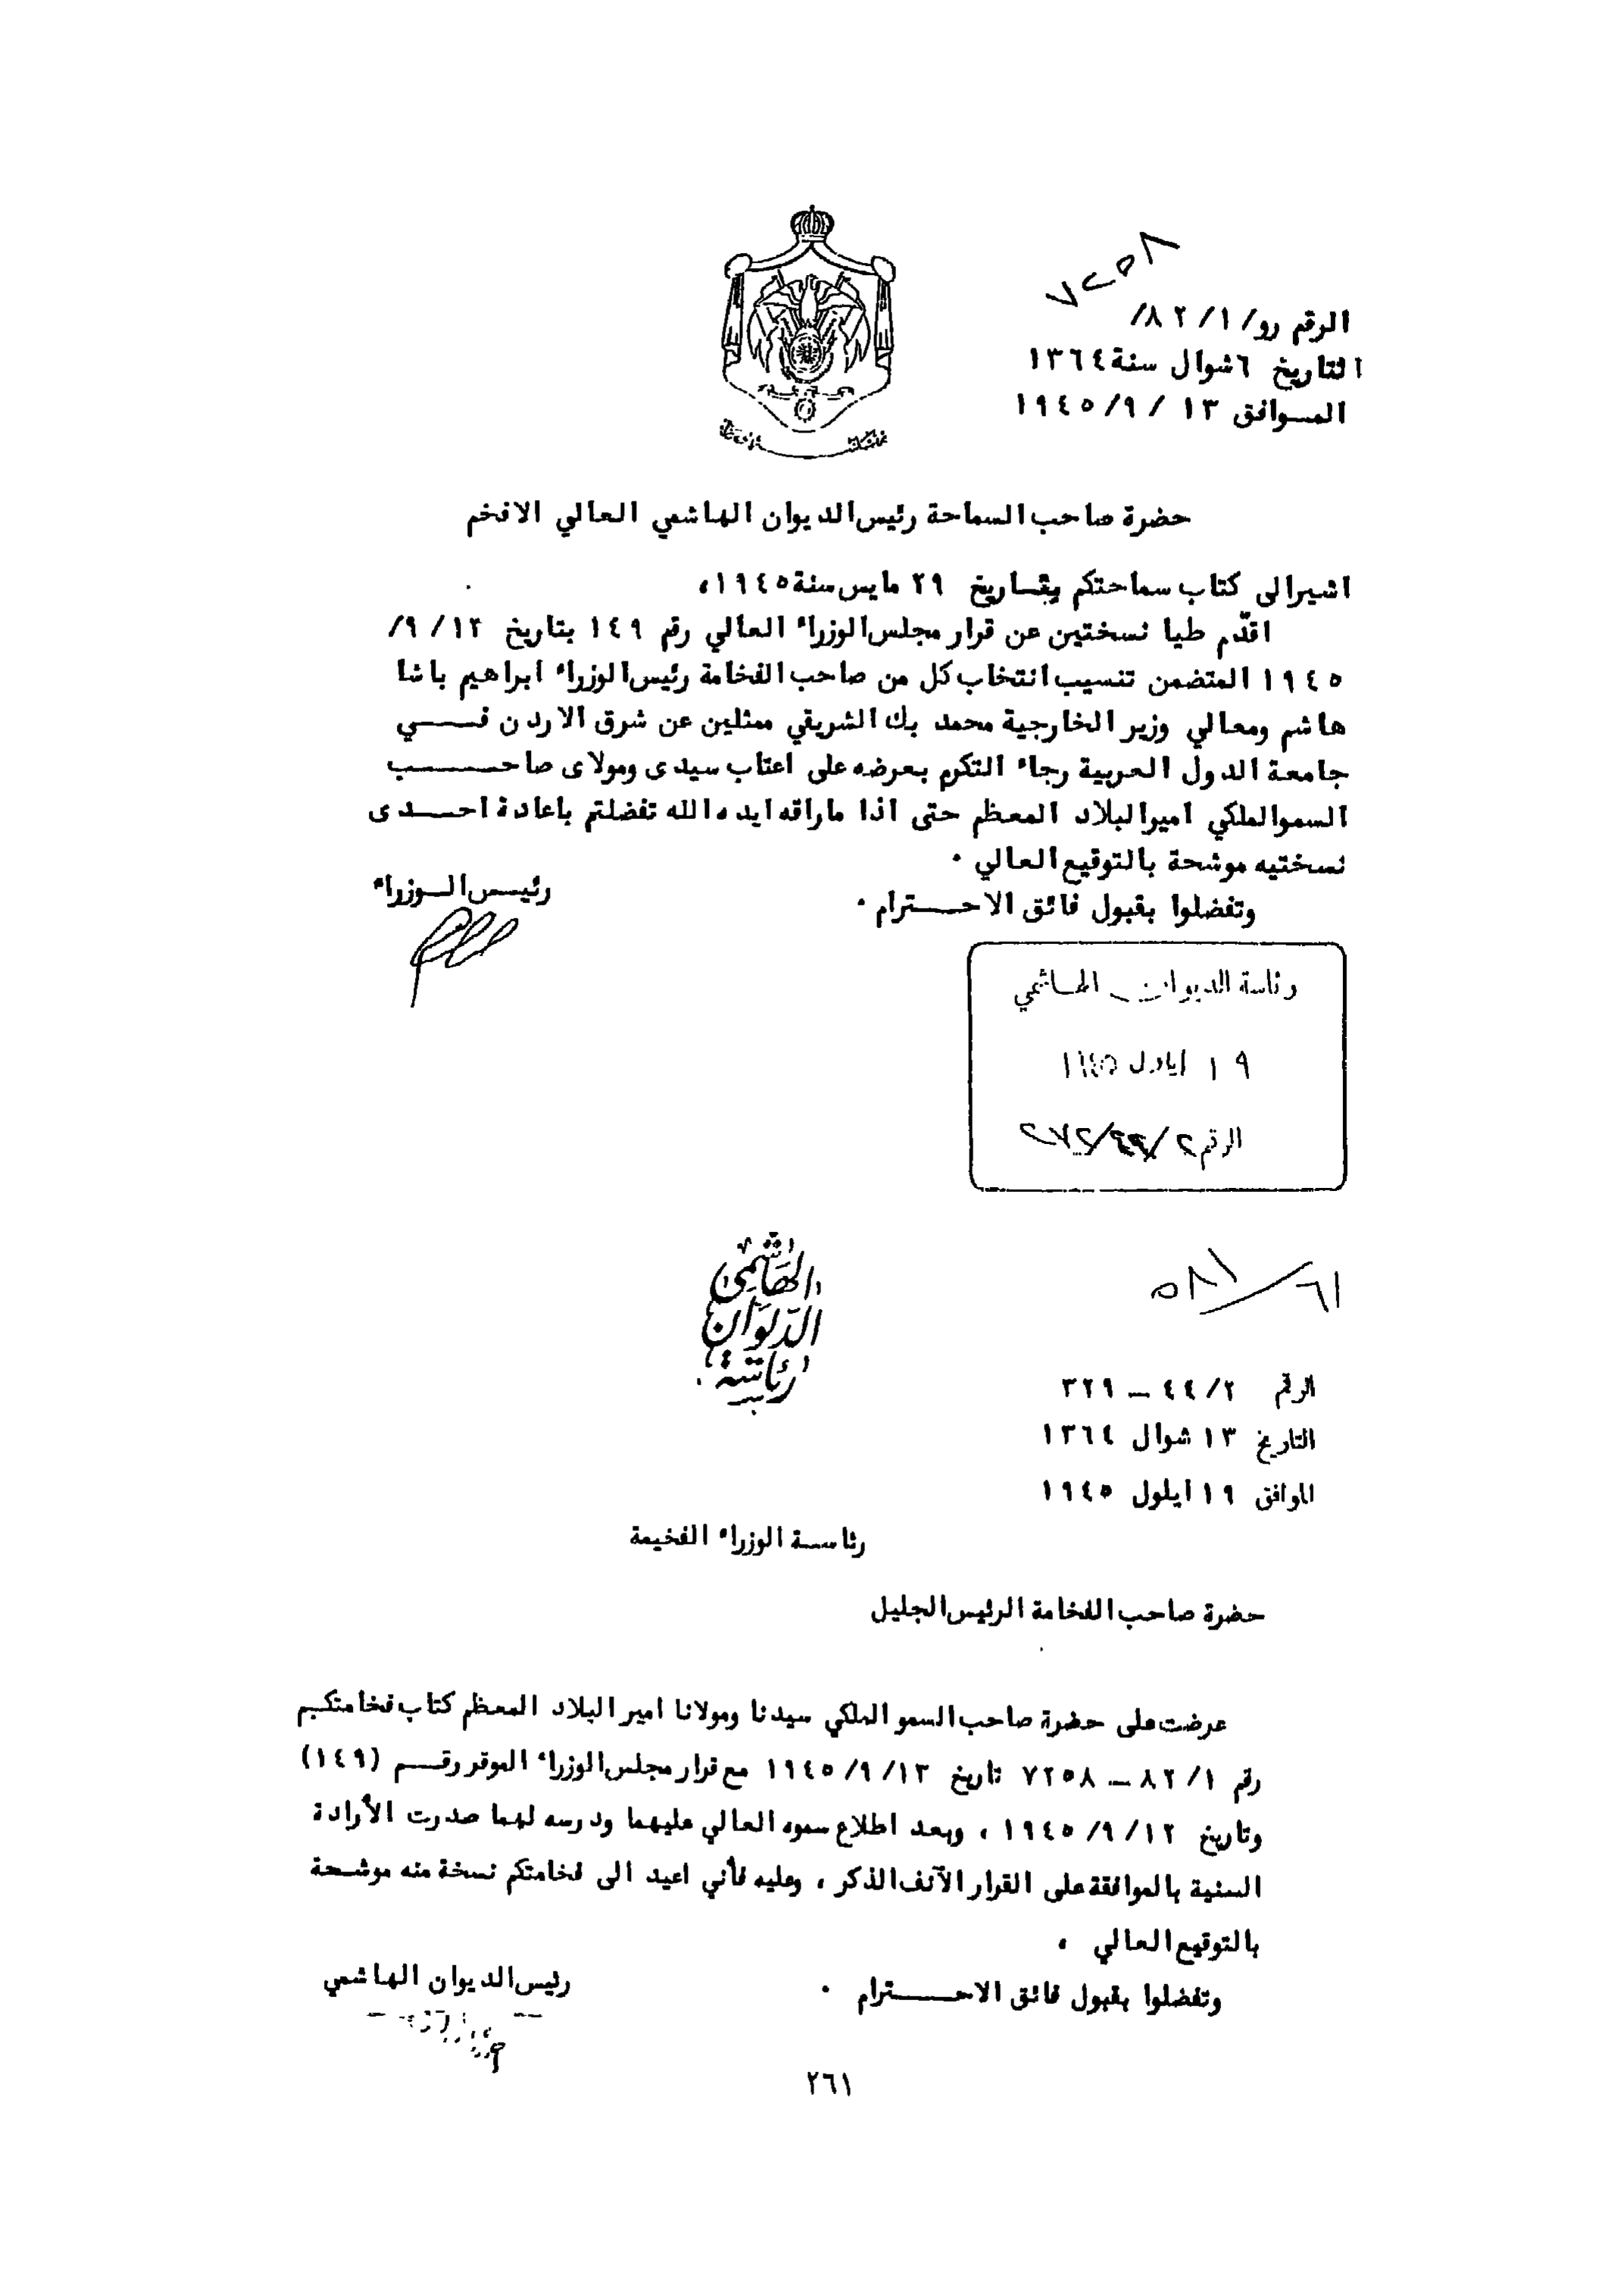 ٧٢٥٨
الرقم رو/ ١/ ٨٢/
التاريخ ٦ شوال سنة ١٣٦٤
الموافق ١٣ / ٩/ ١٩٤٥
حضرة صاحب السماحة رئيس الديوان الهاشمي العالي الافخم
اشير الى كتاب سماحتكم بتاريخ ٢٩ مايس سنة ١٩٤٥،
اقدّم طيا نسختين عن قرار مجلس الوزراء العالي رقم ١٤٩ بتاريخ ١٢/ ٩/
١٩٤٥ المتضمن تنسيب انتخاب كل من صاحب الفخامة رئيس الوزراء ابراهيم باشا
هاشم ومعالي وزير الخارجية محمد بك الشريقي ممثلين عن شرق الاردن فــــي
جامعة الدول العربية رجاء التكرم بعرضه على اعتاب سيدى ومولاى صاحــــب
السمو الملكي امير البلاد المعظم حتى اذا ماراقه ايده الله تفضلتم باعادة احــدى
نسختيه موشحة بالتوقيع العالي ٠
وتفضلوا بقبول فائق الاحــــترام ٠
رئيــس الــوزراء
رئاسة الديوان الهاشمي
١٩ ايلول ١٩٤٥
الرقم
الهاشمي
الديوان
رئاسة
٥٨١/٦١
الرقم ٢/ ٤٤ – ٣٢٩
التاريخ ١٣ شوال ١٣٦٤
الموافق ١٩ ايلول ١٩٤٥
رئاسة الوزراء الفخيمة
حضرة صاحب الفخامة الرئيس الجليل
عرضت على حضرة صاحب السمو الملكي سيدنا ومولانا امير البلاد المعظم كتاب فخامتكم
رقم ١/ ٨٢ – ٧٢٥٨ تاريخ ١٣/ ٩/ ١٩٤٥ مع قرار مجلس الوزراء الموقر رقــم (١٤٩)
وتاريخ ١٢/ ٩/ ١٩٤٥ ، وبعد اطلاع سموه العالي عليهما ودرسه لهما صدرت الأرادة
السنية بالموافقة على القرار الآنف الذكر ، وعليه فأني اعيد الى فخامتكم نسخة منه موشــحة
بالتوقيع العالي ،
وتفضلوا بقبول فائق الاحـــــترام ٠
رئيس الديوان الهاشمي
٢٦١